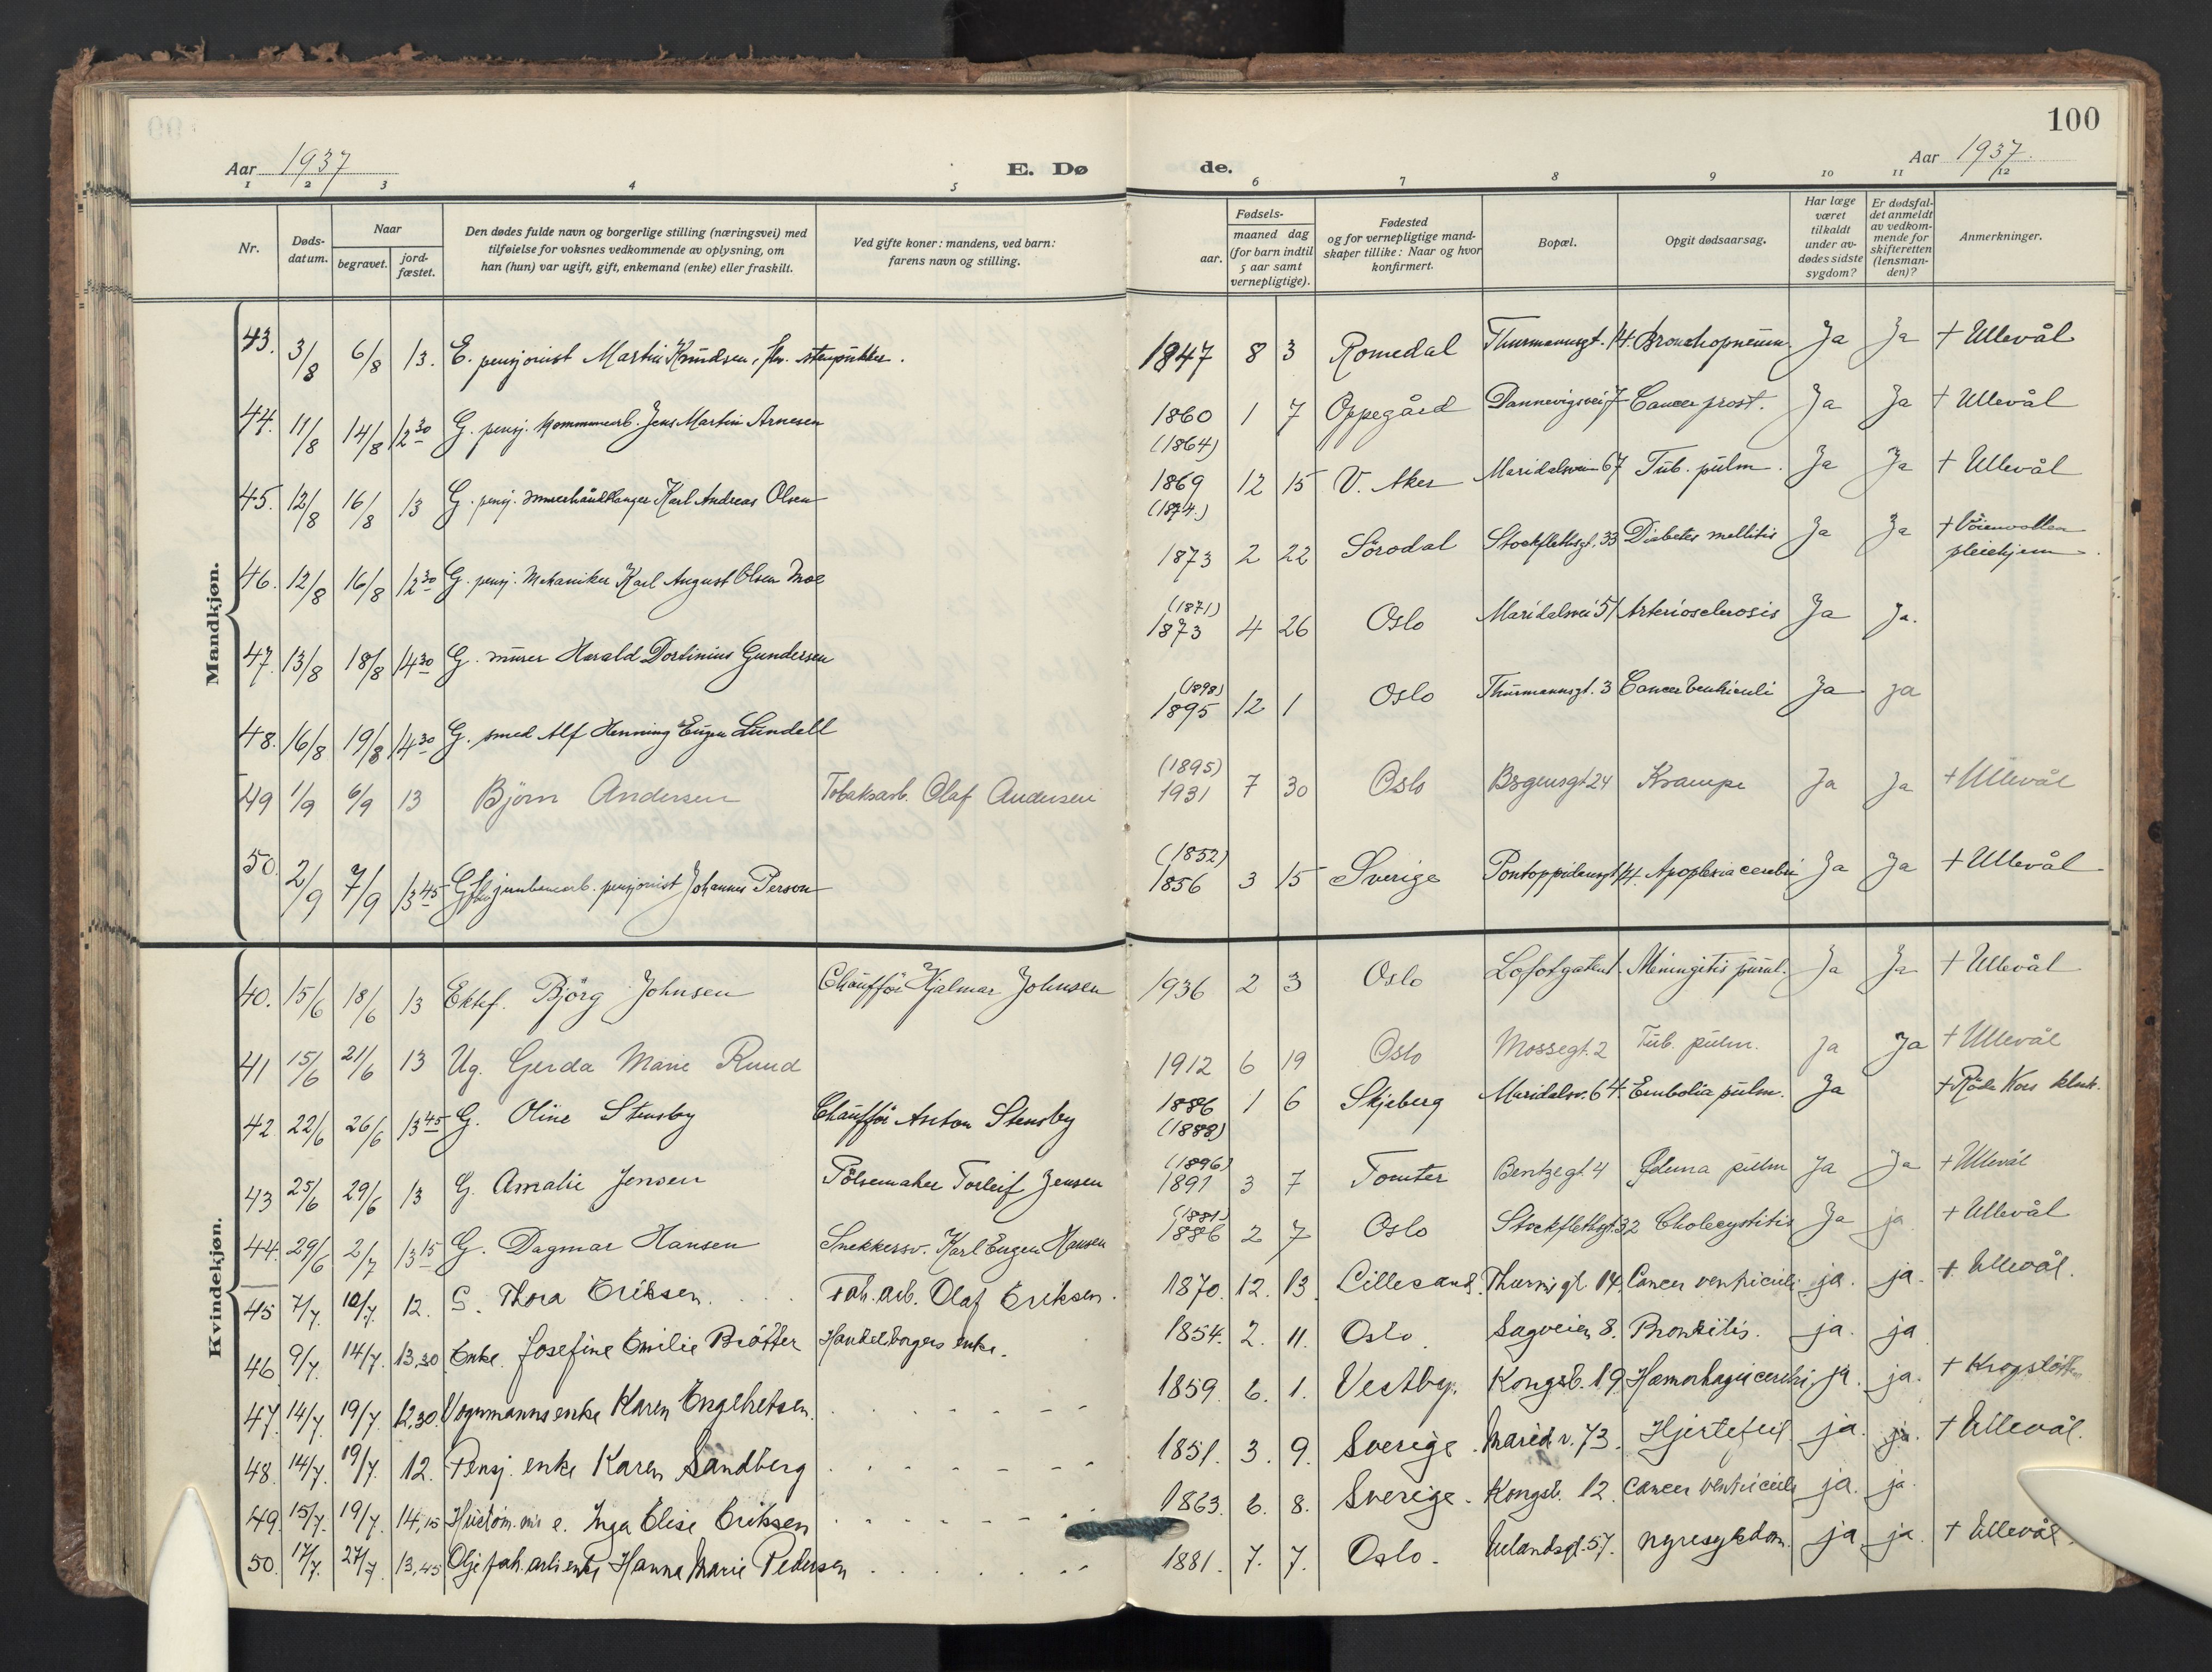 100
Aar 1937
E. Dø
de.
Aar 1937.
1 2 3 4 5 6 7 8 9 10 11 12
Nr.
Døds-
datum.
Naar
begravet.
jord-
fæstet.
Den dødes fulde navn og borgerlige stilling (næringsvei) med
tilføielse for voksnes vedkommende av oplysning, om
han (hun) var ugift, gift, enkemand (enke) eller fraskilt.
Ved gifte koner: mandens, ved barn:
farens navn og stilling.
Fødsels-
aar.
maaned dag
(for barn indtil
5 aar samt
vernepligtige).
Fødested
og for vernepligtige mand-
skaper tillike: Naar og hvor
konfirmert.
Bopæl.
Opgit dødsaarsag.
Har læge
været
tilkaldt
under av-
dødes sidste
sygdom?
Er dødsfal-
det anmeldt
av vedkom-
mende for
skifteretten
(lensman-
den)?
Anmerkninger.
Mandkjøn.
43. 3/8 6/8 13. E. pensjonist Martin Knudsen, fhv. stenpukker. 1847 8 3 Romedal Thurmannsgt. 14. Bronchopneum. Ja Ja + Ullevål
44. 11/8 14/8 12 30 G. pensj. kommunearb. Jens Martin Arnesen 1860 1 7 Oppegård Dannevigsvei 7 Cancer prost. Ja Ja + Ullevål
(1864)
45. 12/8 16/8 13 G. pensj. murerhåndlanger Karl Andreas Olsen 1869 12 15 V. Aker Maridalsveien 67 Tub. pulm. Ja Ja + Ullevål
(1874.)
46. 12/8 16/8 12 30 G. pensj. Mekaniker Karl August Olsen Moe 1873 2 22 Sörodal Stockflethsgt. 33 Diabetes mellitis Ja Ja + Vöienvollen
pleiehjem.
(1871)
47. 13/8 18/8 14 30 G. murer Harald Dortinius Gundersen 1873 4 26 Oslo Maridalsvei 51 Arteriosclerosis Ja Ja.
(1898)
48. 16/8 19/8 14 30 G. smed Alf Henning Eugen Lundell 1895 12 1 Oslo Thurmannsgt. 3 Cancer Ventriculi Ja ja
(1895)
49 1/9 6/9 13 Björn Andersen Tobaksarb. Olaf Andersen 1931 7 30 Oslo Bergensgt 24 Krampe Ja Ja + Ullevål
(1852)
50. 2/9 7/9 13 45 G. fhv. jernbanearb. pensjonist Johannes Person 1856 3 15 Sverige Pontoppidansgt 14. Apoplexia cerebri Ja Ja + Ullevål
Kvindekjøn.
40. 15/6 18/6 13 Ektef. Björg Johnsen Chauffør Hjalmar Johnsen 1936 2 3 Oslo Lofotgaten 1. Meningitis purul. Ja Ja + Ullevål
41 15/6 21/6 13 Ug. Gerda Marie Ruud 1912 6 19 Oslo Mossegt. 2 Tub. pulm. Ja Ja + Ullevål
42. 22/6 26/6 13 45 G. Oline Stensby Chauffør Anton Stensby 1886 1 6 Skjeberg Maridalsv. 64. Embolia pulm. Ja + Röde Kors klinik.
(1888)
(1896)
43 25/6 29/6 13 G. Amalie Jensen Pölsemaker Torleif Jensen 1891 3 7 Tomter Bentzegt 4 Ødema pulm Ja Ja + Ullevål
(1881)
44. 29/6 2/7 13 15 G. Dagmar Hansen Snekkersv. Karl Eugen Hansen 1886 2 7 Oslo Stockflethsgt. 32 Cholecystitis Ja ja + Ullevål
45 7/7. 10/7. 12. G. Thora Eriksen. Fab. arb. Olaf Eriksen. 1870. 12. 13. Lillesand. Thurms gt 14. Cancer ventriculi ja. ja. + Ullevål.
46. 9/7. 14/7. 13,30 Enke Josefine Emilie Brötter Handelsborgers enke. 1854. 2. 11. Oslo. Sagveien 8. Bronkitis. ja. ja
47. 14/7. 19/7. 12,30. Vognmanns enke Karen Engebretsen. 1859. 6. 1. Vestby. Kongsb. 19 Hæmorhagia cerebri ja. ja. + Krogstötten
48. 14/7. 19/7. 12. Pensj. enke Karen Sandberg 1851. 3. 9. Sverige. Marid v. 73. Hjertefeil ja. ja. + Ullevål.
49. 15/7. 19/7. 14,15 e. Inga Elise Eriksen 1863. 6. 8. Sverige. Kongsb. 12. Cancer ventriculi ja. ja.
50. 17/7. 27/7. 13,45 Oljefab. arb. enke Hanna Marie Pedersen 1881. 7. 7. Oslo. Uelandsgt. 57. nyresykdom. ja ja. + Ullevål.